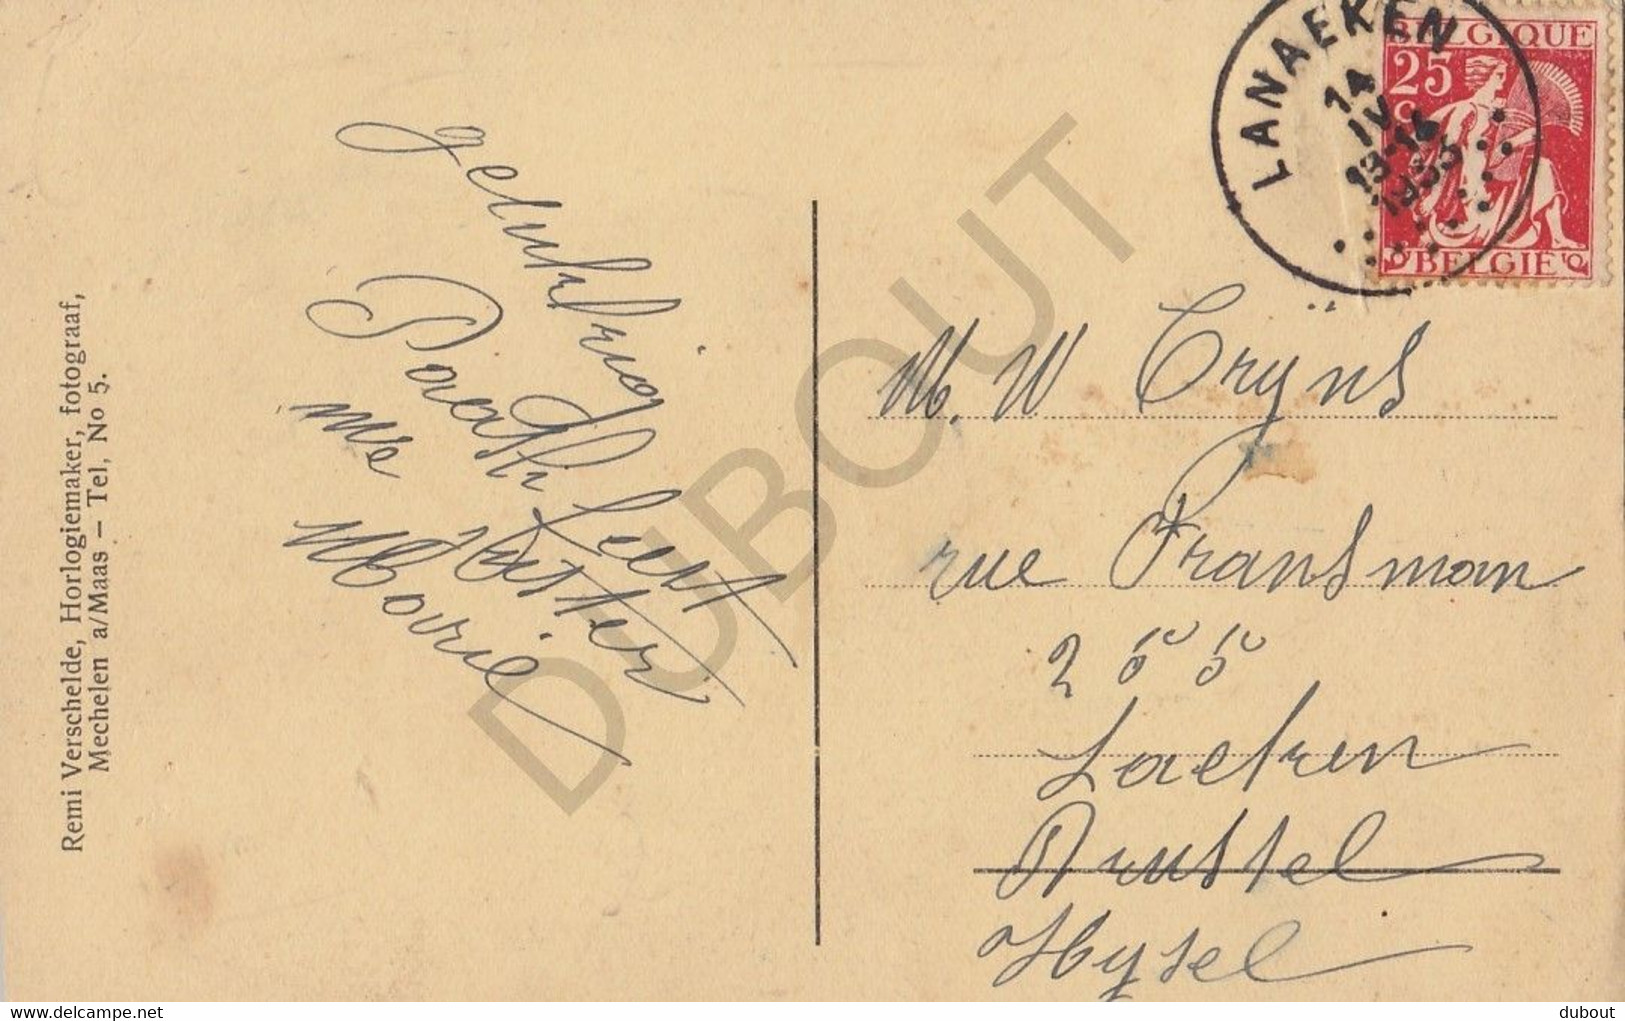 Remi Verschelde, Horlogiemaker, fotograaf,
Mechelen a/Maas — Tel, No 5.
gelukkig
Paasch feest
me
Marie
LANAEKEN
14
IV
1935
BELGIQUE
25
C
BELGIE
M. W Crÿns
rue Fransman
255
Laeken
Brussel
Hysel
DUBOUT
dubout